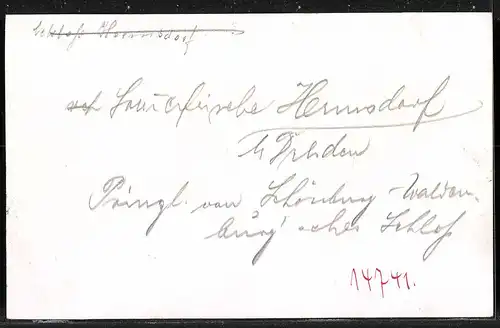 Schloß Hermsdorf
Sommerfrische Hermsdorf
b/Dresden
Prinzl. von Schönburg-Walden-
burg'sches Schloß
14741.